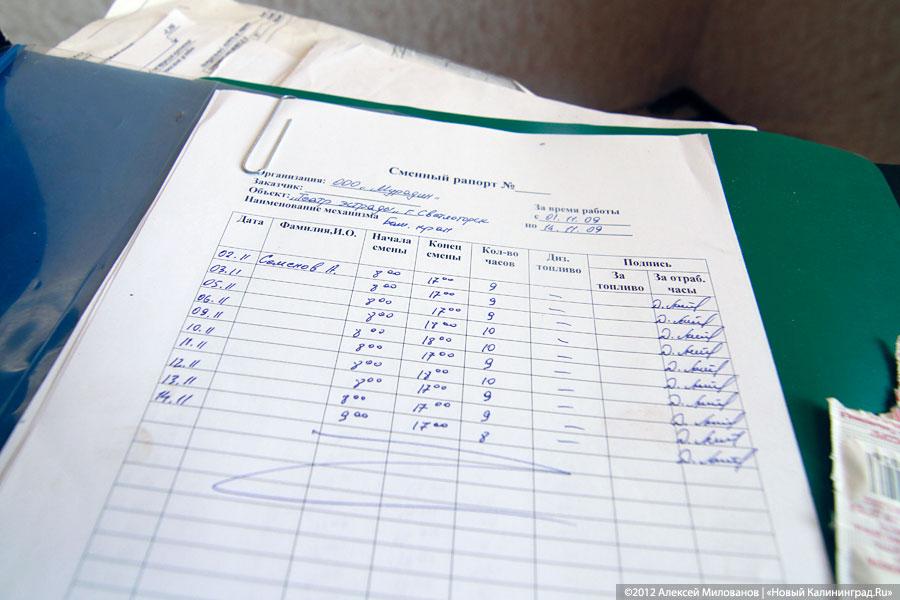 Сменный рапорт №
Организация: ООО "Мурадин"
Заказчик:
Объект: "Театр эстрады" г. Светлогорск
Наименование механизма Баш. кран
За время работы
с 01.11.09
по 14.11.09
Дата Фамилия,И.О. Начала смены Конец смены Кол-во часов Диз. топливо Подпись
За топливо За отраб. часы
02.11 Семенов А. 8 00 17 00 9 —
03.11 8 00 17 00 9 —
05.11 8 00 17 00 9 —
06.11 8 00 18 00 10 —
09.11 8 00 18 00 10 —
10.11 8 00 17 00 9 —
11.11 8 00 18 00 10 —
12.11 8 00 17 00 9 —
13.11 8 00 17 00 9 —
14.11 9 00 17 00 8 —
©2012 Алексей Милованов | «Новый Калининград.Ru»